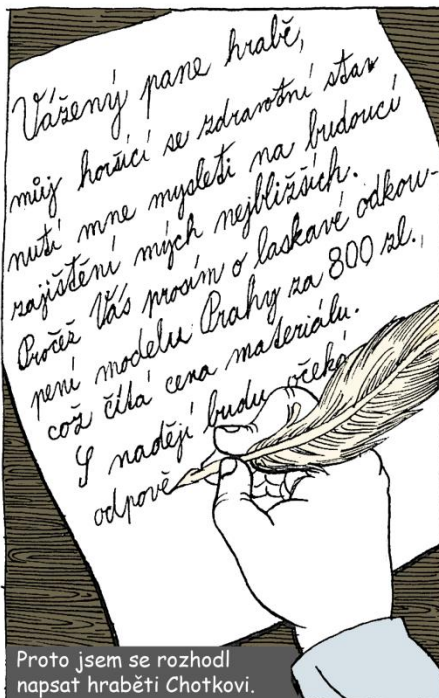 Vážený pane hrabě,
můj horšící se zdravotní stav
nutí mne mysleti na budoucí
zajištění mých nejbližších.
Pročež Vás prosím o laskavé odkou-
pení modelu Prahy za 800 zl.,
což čítá cena materiálu.
S nadějí budu očeká
odpově
Proto jsem se rozhodl
napsat hraběti Chotkovi.